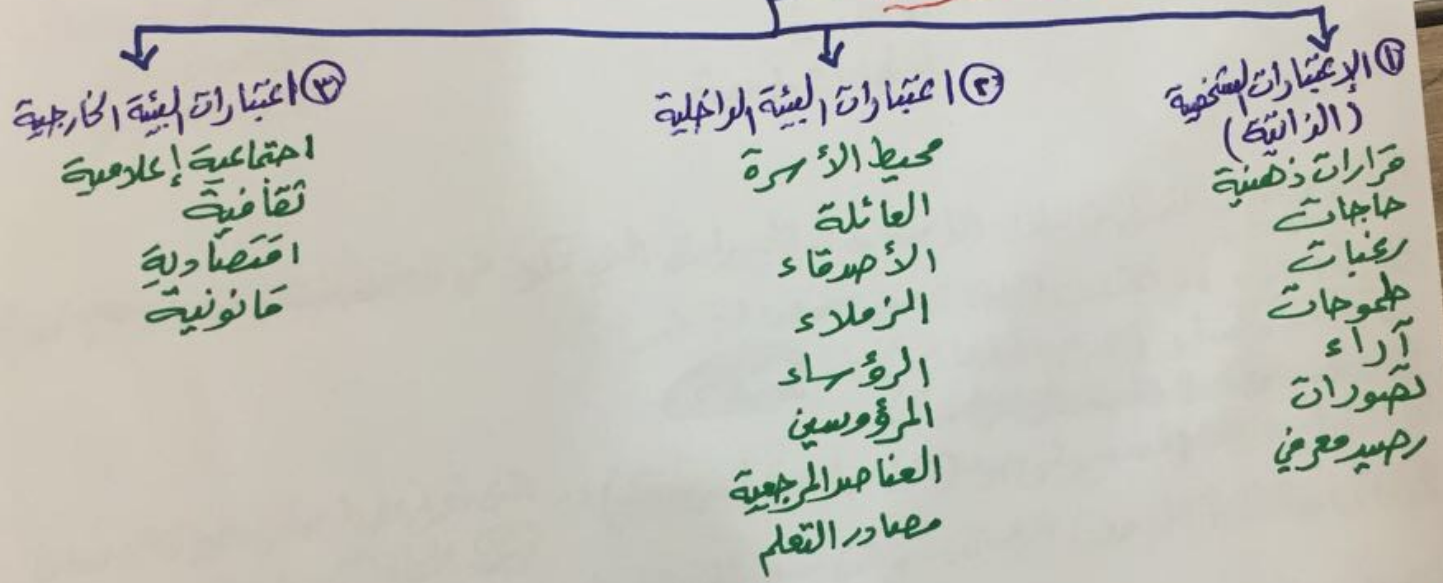 ① الإعتبارات الشخصية
(الذاتية)
قرارات ذهنية
حاجات
رغبات
طموحات
آراء
تصورات
رصيد معرفي
② اعتبارات البيئة الداخلية
محيط الأسرة
العائلة
الأصدقاء
الزملاء
الرؤساء
المرؤوسين
العناصر المرجعية
مصادر التعلم
③ اعتبارات البيئة الخارجية
اجتماعية إعلامية
ثقافية
اقتصادية
قانونية